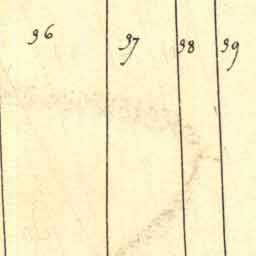 96 97 98 99